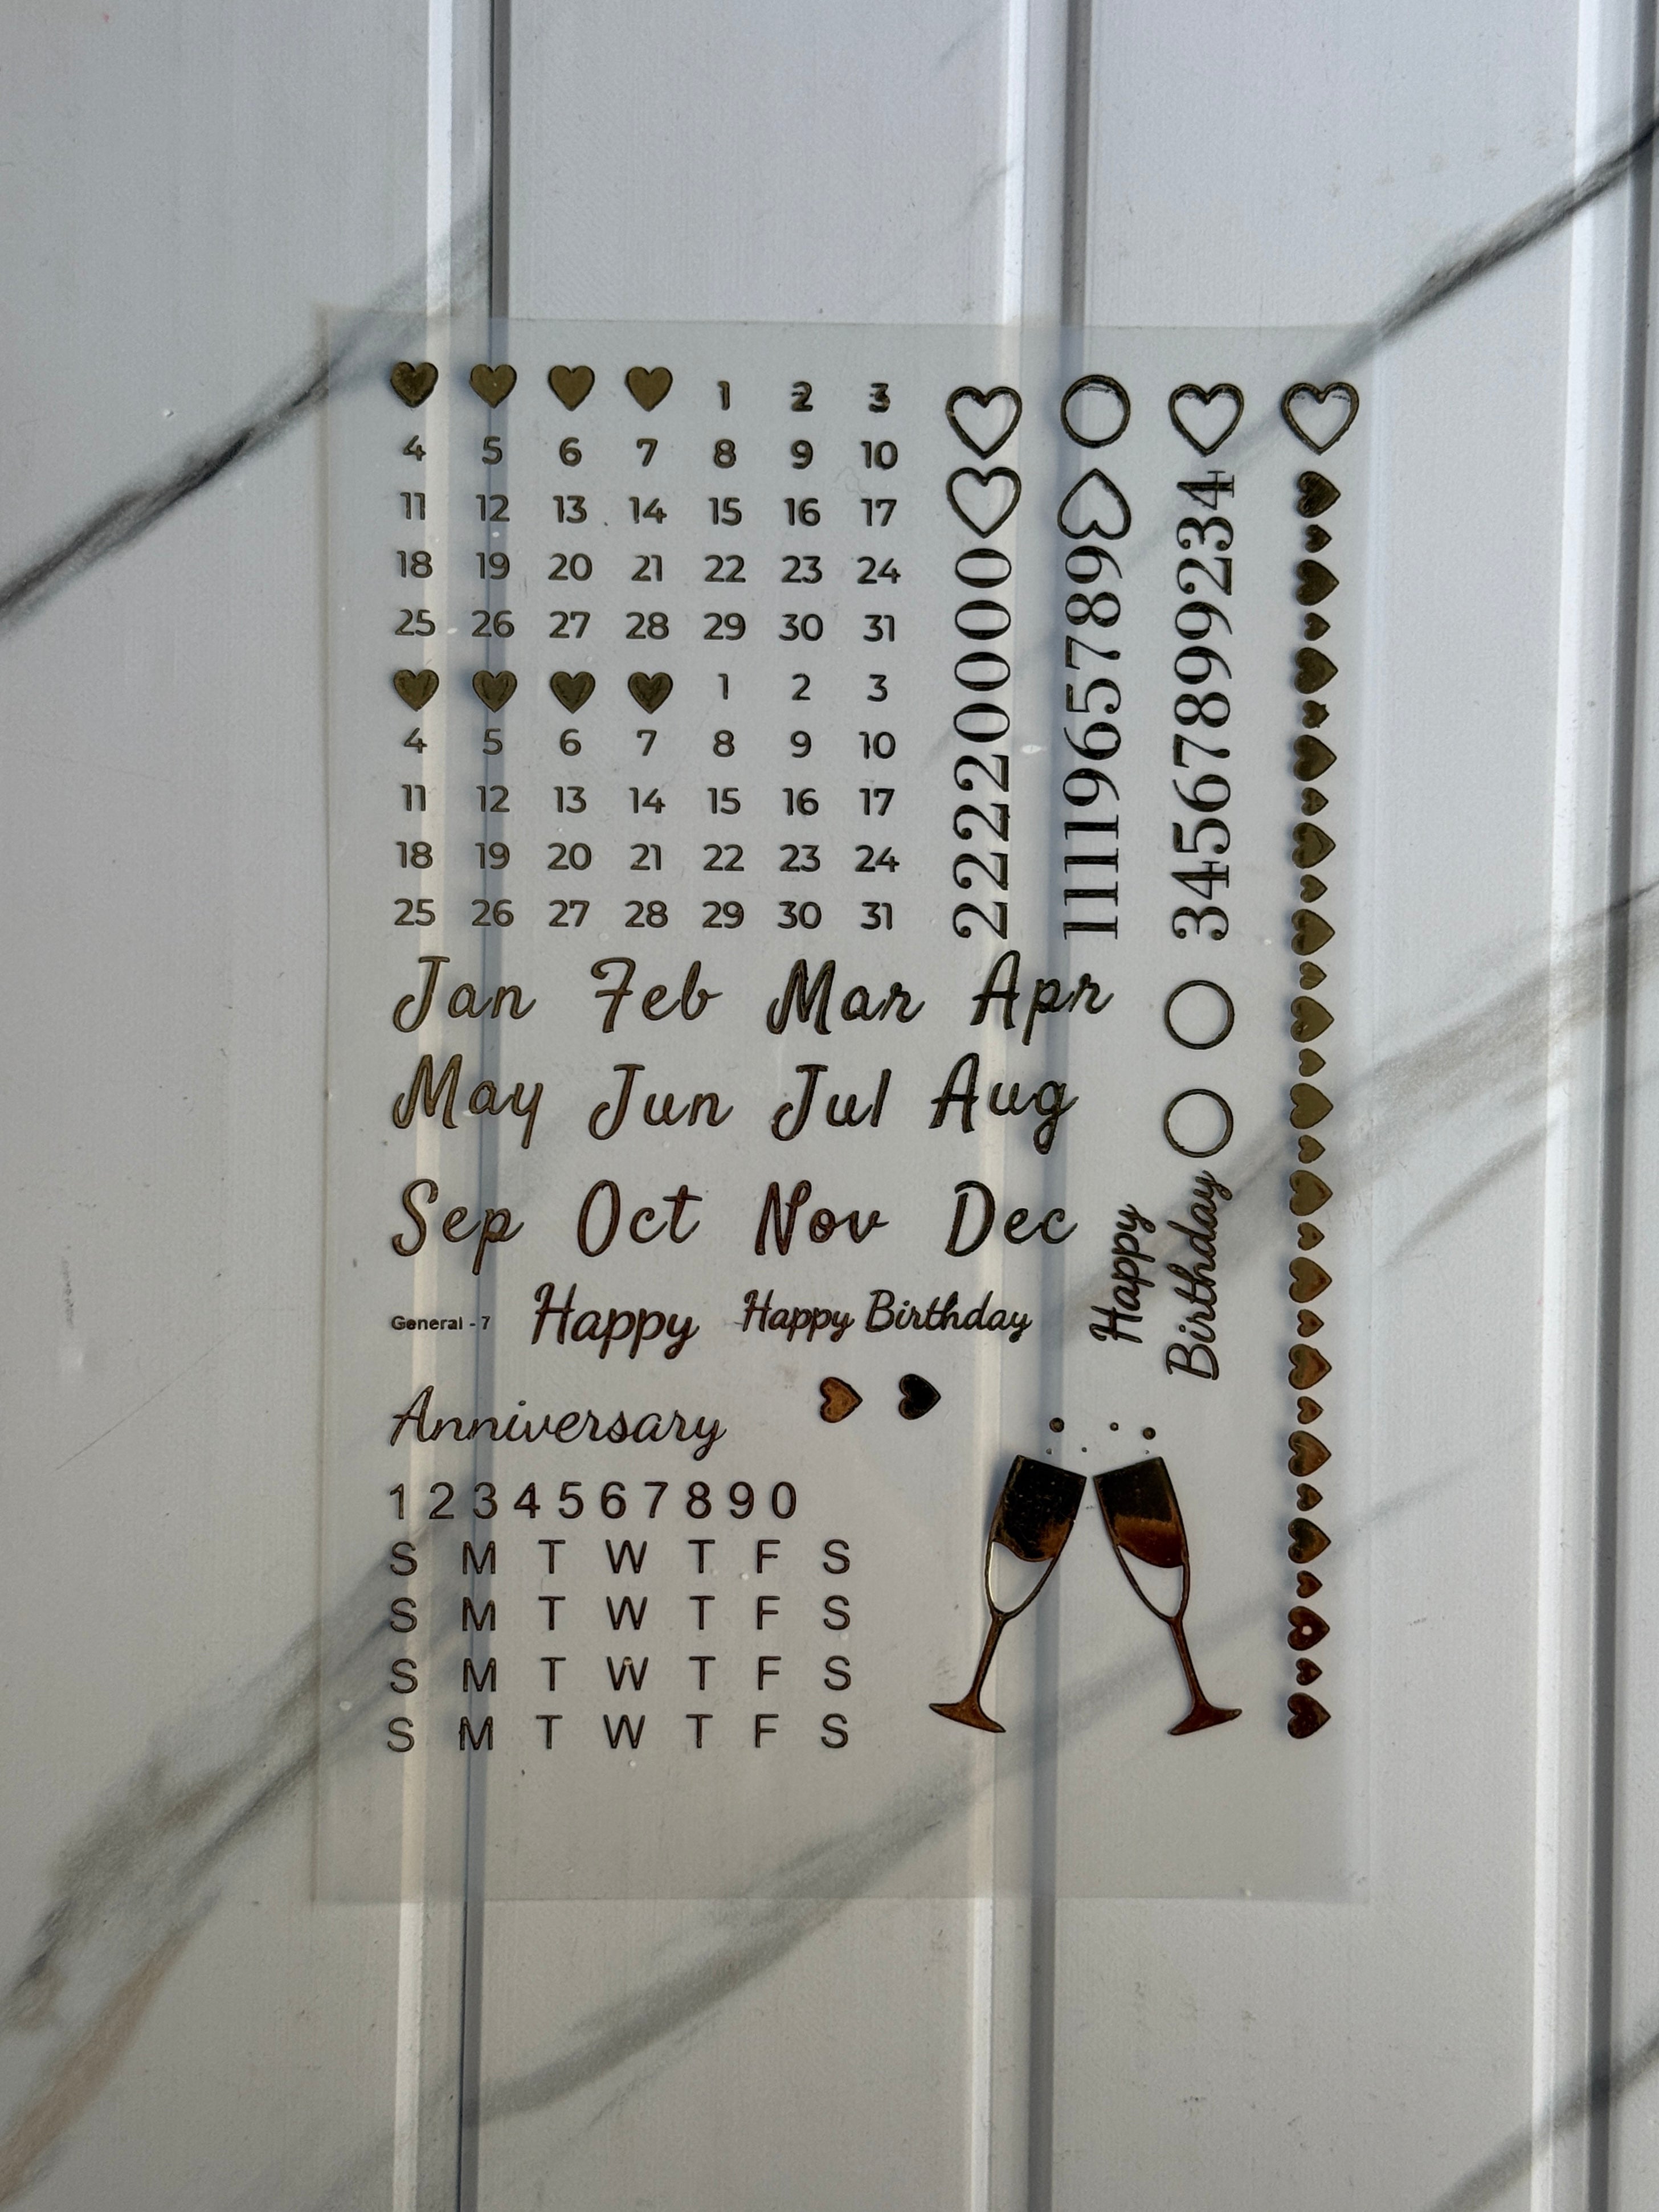 1 2 3
4 5 6 7 8 9 10
11 12 13 14 15 16 17
18 19 20 21 22 23 24
25 26 27 28 29 30 31
1 2 3
4 5 6 7 8 9 10
11 12 13 14 15 16 17
18 19 20 21 22 23 24
25 26 27 28 29 30 31
22220000
1111965789
34567899234
Jan Feb Mar Apr
May Jun Jul Aug
Sep Oct Nov Dec
General - 7
Happy
Happy Birthday
Happy
Birthday
Anniversary
1 2 3 4 5 6 7 8 9 0
S M T W T F S
S M T W T F S
S M T W T F S
S M T W T F S